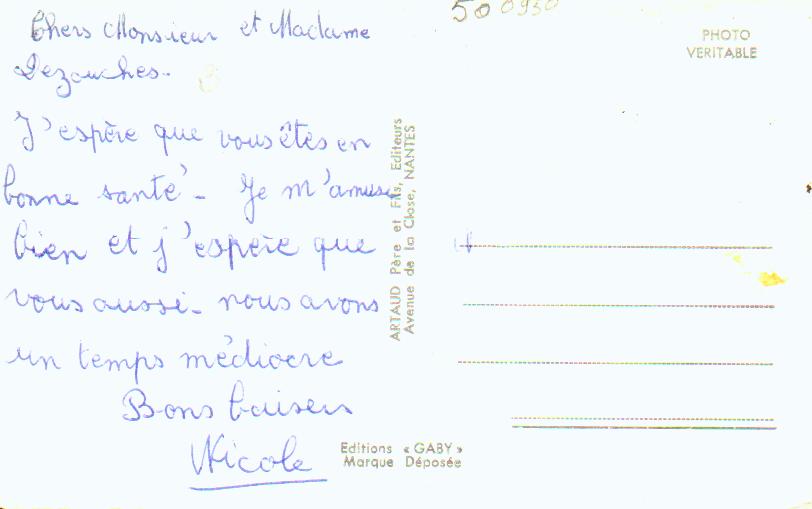 Chers Monsieur et Madame
Dezouches.
J'espère que vous êtes en
bonne santé - Je m'amuse
bien et j'espère que
vous aussi - nous avons
un temps médiocre
Bons baisers
Nicole
500930
PHOTO
VERITABLE
ARTAUD Père et Fils, Editeurs
Avenue de la Close, NANTES
Editions « GABY »
Marque Déposée